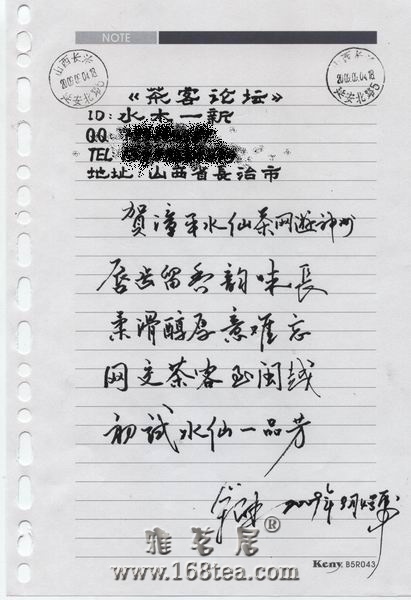 NOTE
山西长兴
2009.09.04.18
延安北路
山西长兴
2009.09.04.18
延安北路
《茶客论坛》
ID:水木一新
QQ
TEL
地址:山西省長治市
賀漳平水仙茶网遊神州
唇齿留香韵味長
柔滑醇厚意难忘
网交茶客至闽越
初試水仙一品芳
2009年9月4號
雅茗居®
www.168tea.com
Keny. B5R043